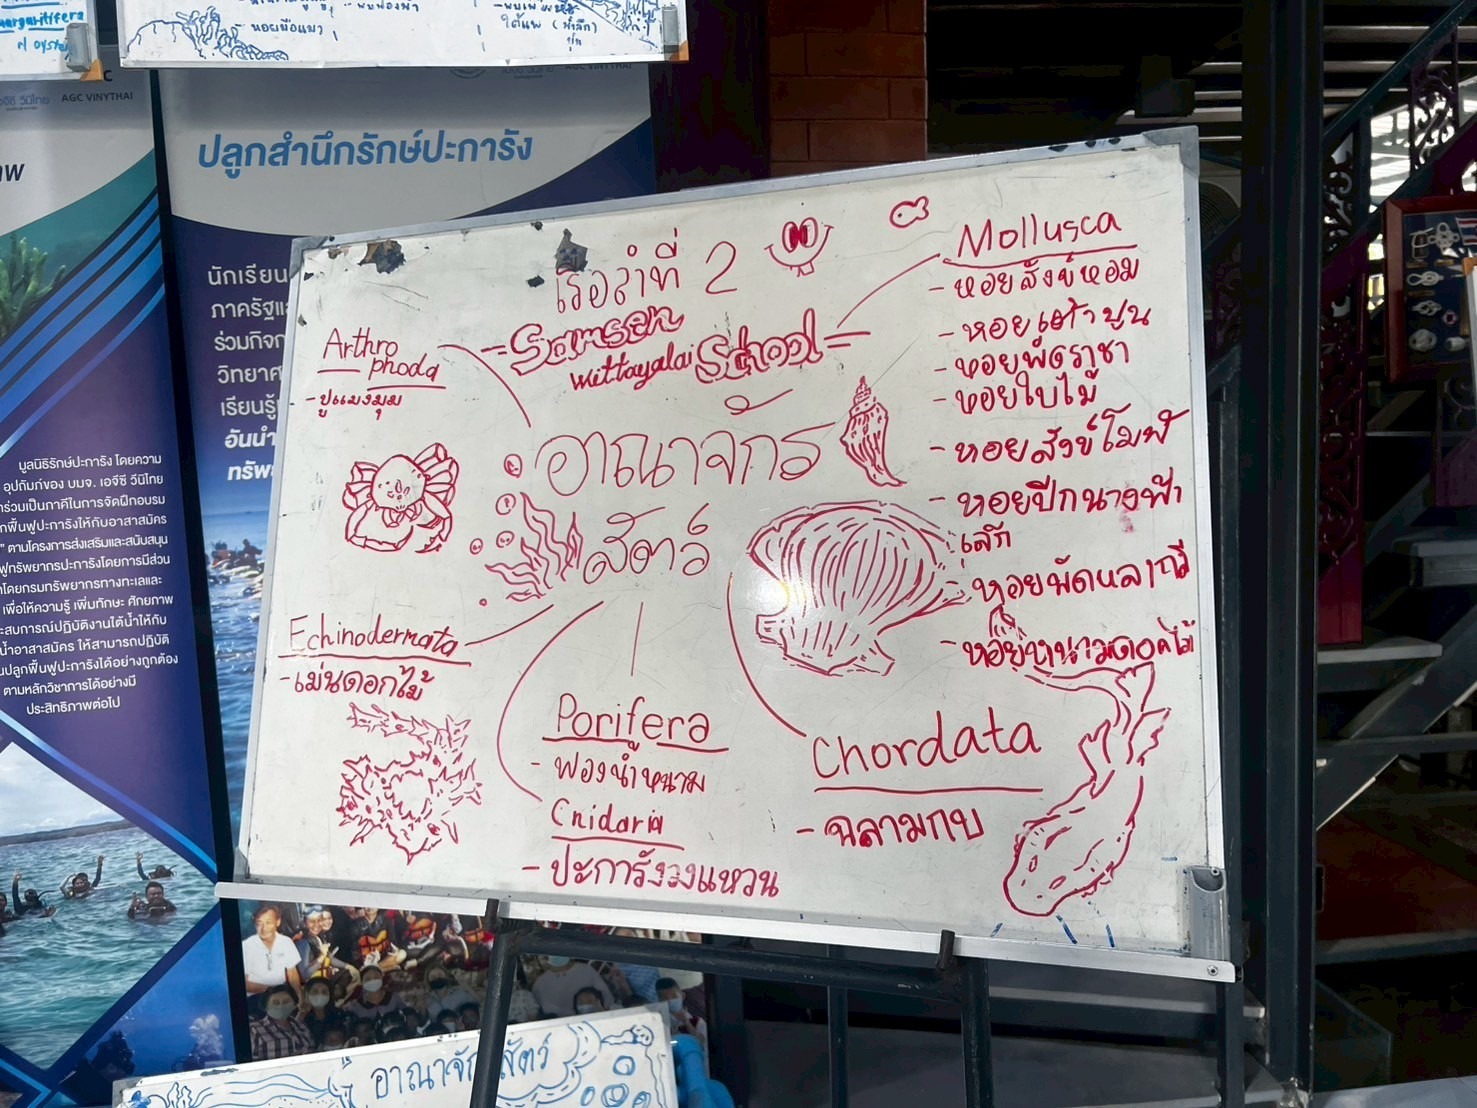 margaritifera
oyster
หอยมือแมว
AGC VINYTHAI
ปลูกสำนึกรักษ์ปะการัง
นักเรียน
ร่วมกิจก
วิทยาศ
เรียนรู้
อันนำ
มูลนิธิรักษ์ปะการัง โดยความ
อุปถัมภ์ของ บมจ. เอจีซี วีนิไทย
ร่วมเป็นภาคีในการจัดฝึกอบรม
กฟื้นฟูปะการังให้กับอาสาสมัคร
" ตามโครงการส่งเสริมและสนับสนุน
ฟูทรัพยากรปะการังโดยการมีส่วน
โดยกรมทรัพยากรทางทะเลและ
เพื่อให้ความรู้ เพิ่มทักษะ ศักยภาพ
ะสบการณ์ปฏิบัติงานใต้น้ำให้กับ
น้ำอาสาสมัคร ให้สามารถปฏิบัติ
นปลูกฟื้นฟูปะการังได้อย่างถูกต้อง
ตามหลักวิชาการได้อย่างมี
ประสิทธิภาพต่อไป
เรือลำที่ 2
Samsen
Wittayalai School
อาณาจักร
สัตว์
Arthro
phoda
- ปูแมงมุม
Echinodermata
- เม่นดอกไม้
Porifera
- ฟองน้ำหนาม
Cnidaria
- ปะการังวงแหวน
Chordata
- ฉลามกบ
Mollusca
- หอยสังข์หอม
- หอยเต้าปูน
- หอยพัดราชา
- หอยใบไม้
- หอยสังข์โมฬี
- หอยปีกนางฟ้า
เล็ก
- หอยพัดหลากสี
- หอยหนามดอกไม้
อาณาจักรสัตว์